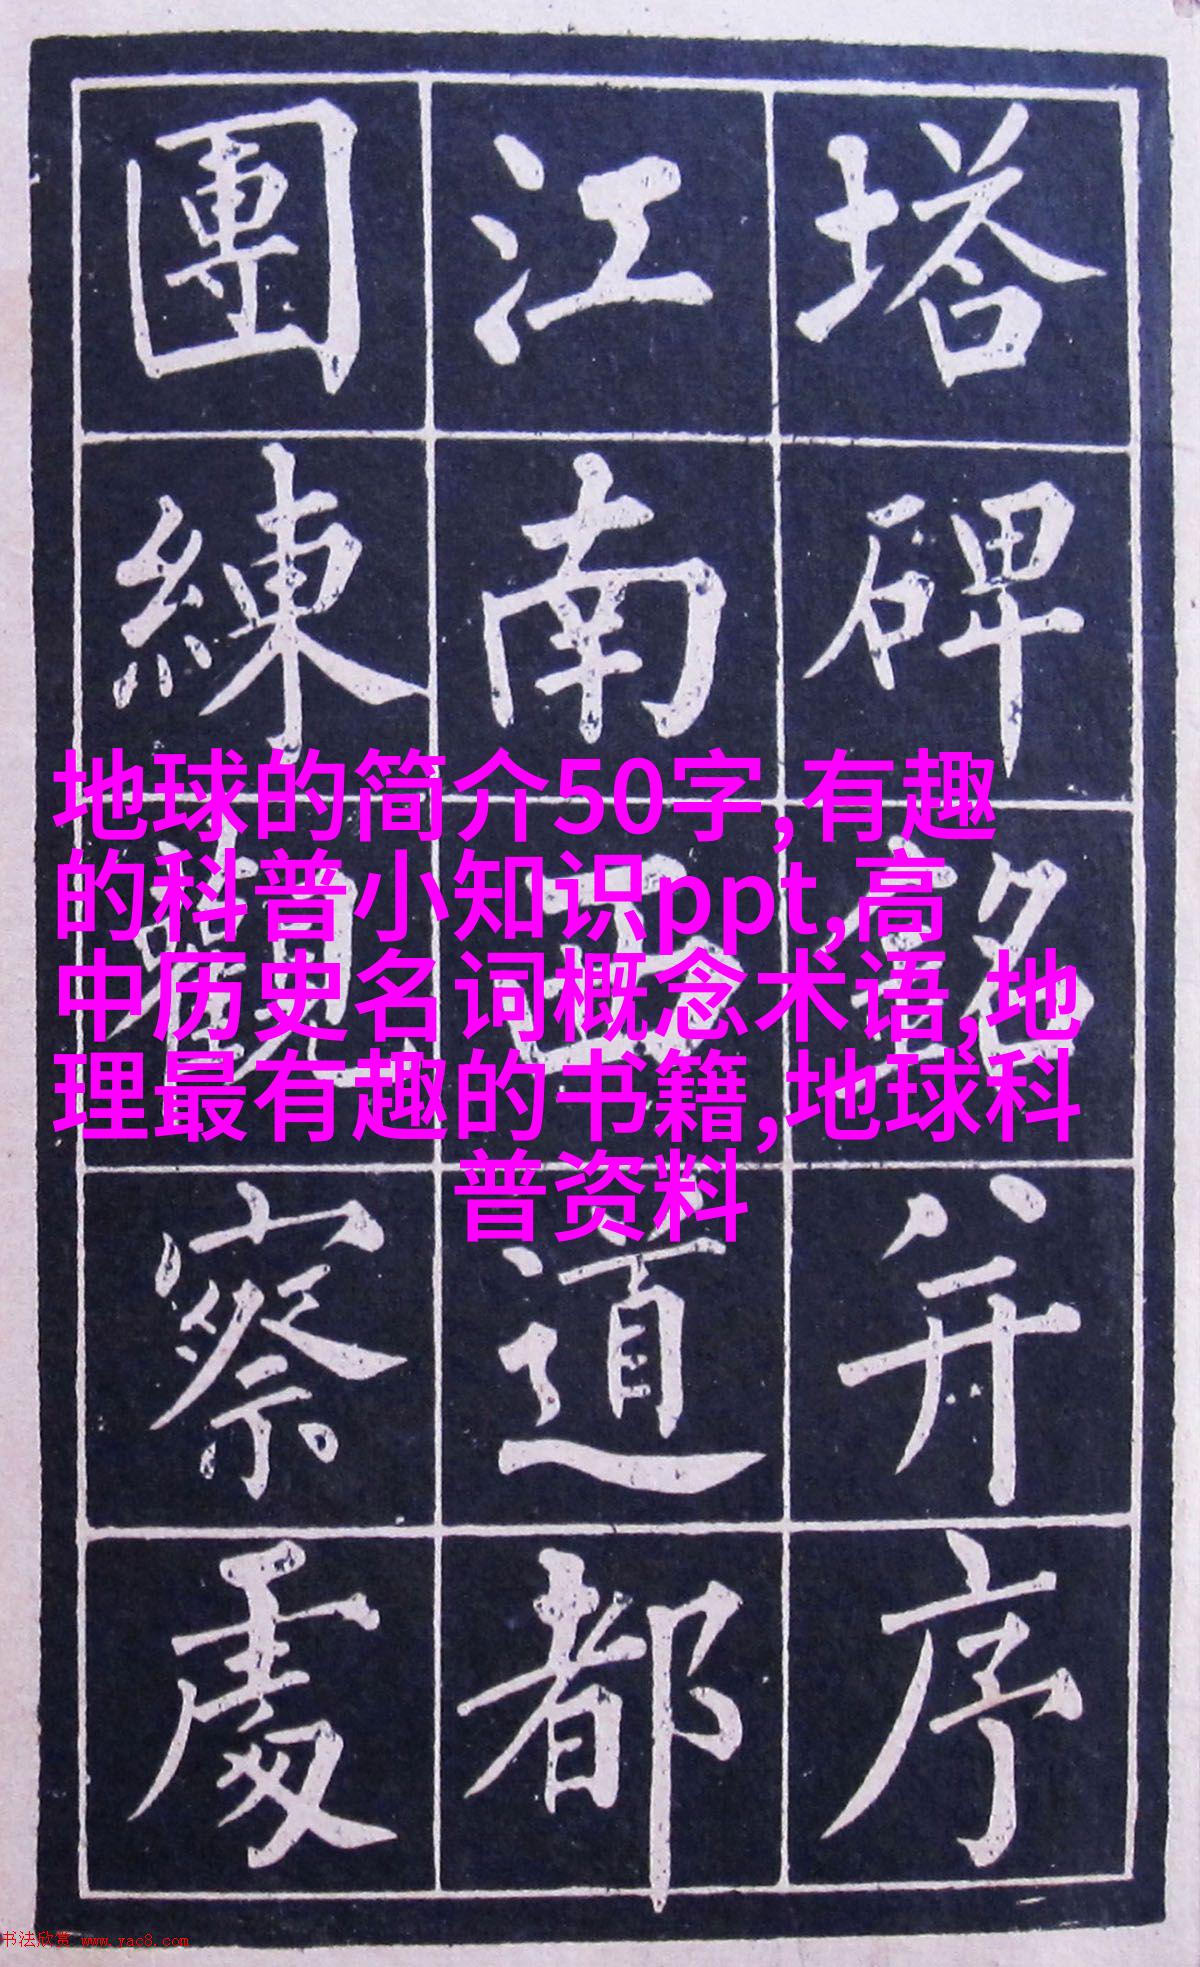 塔碑銘并序
江南西道都
團練觀察處
地球的简介50字,有趣
的科普小知识ppt,高
中历史名词概念术语,地
理最有趣的书籍,地球科
普资料
书法欣赏 www.yac8.com